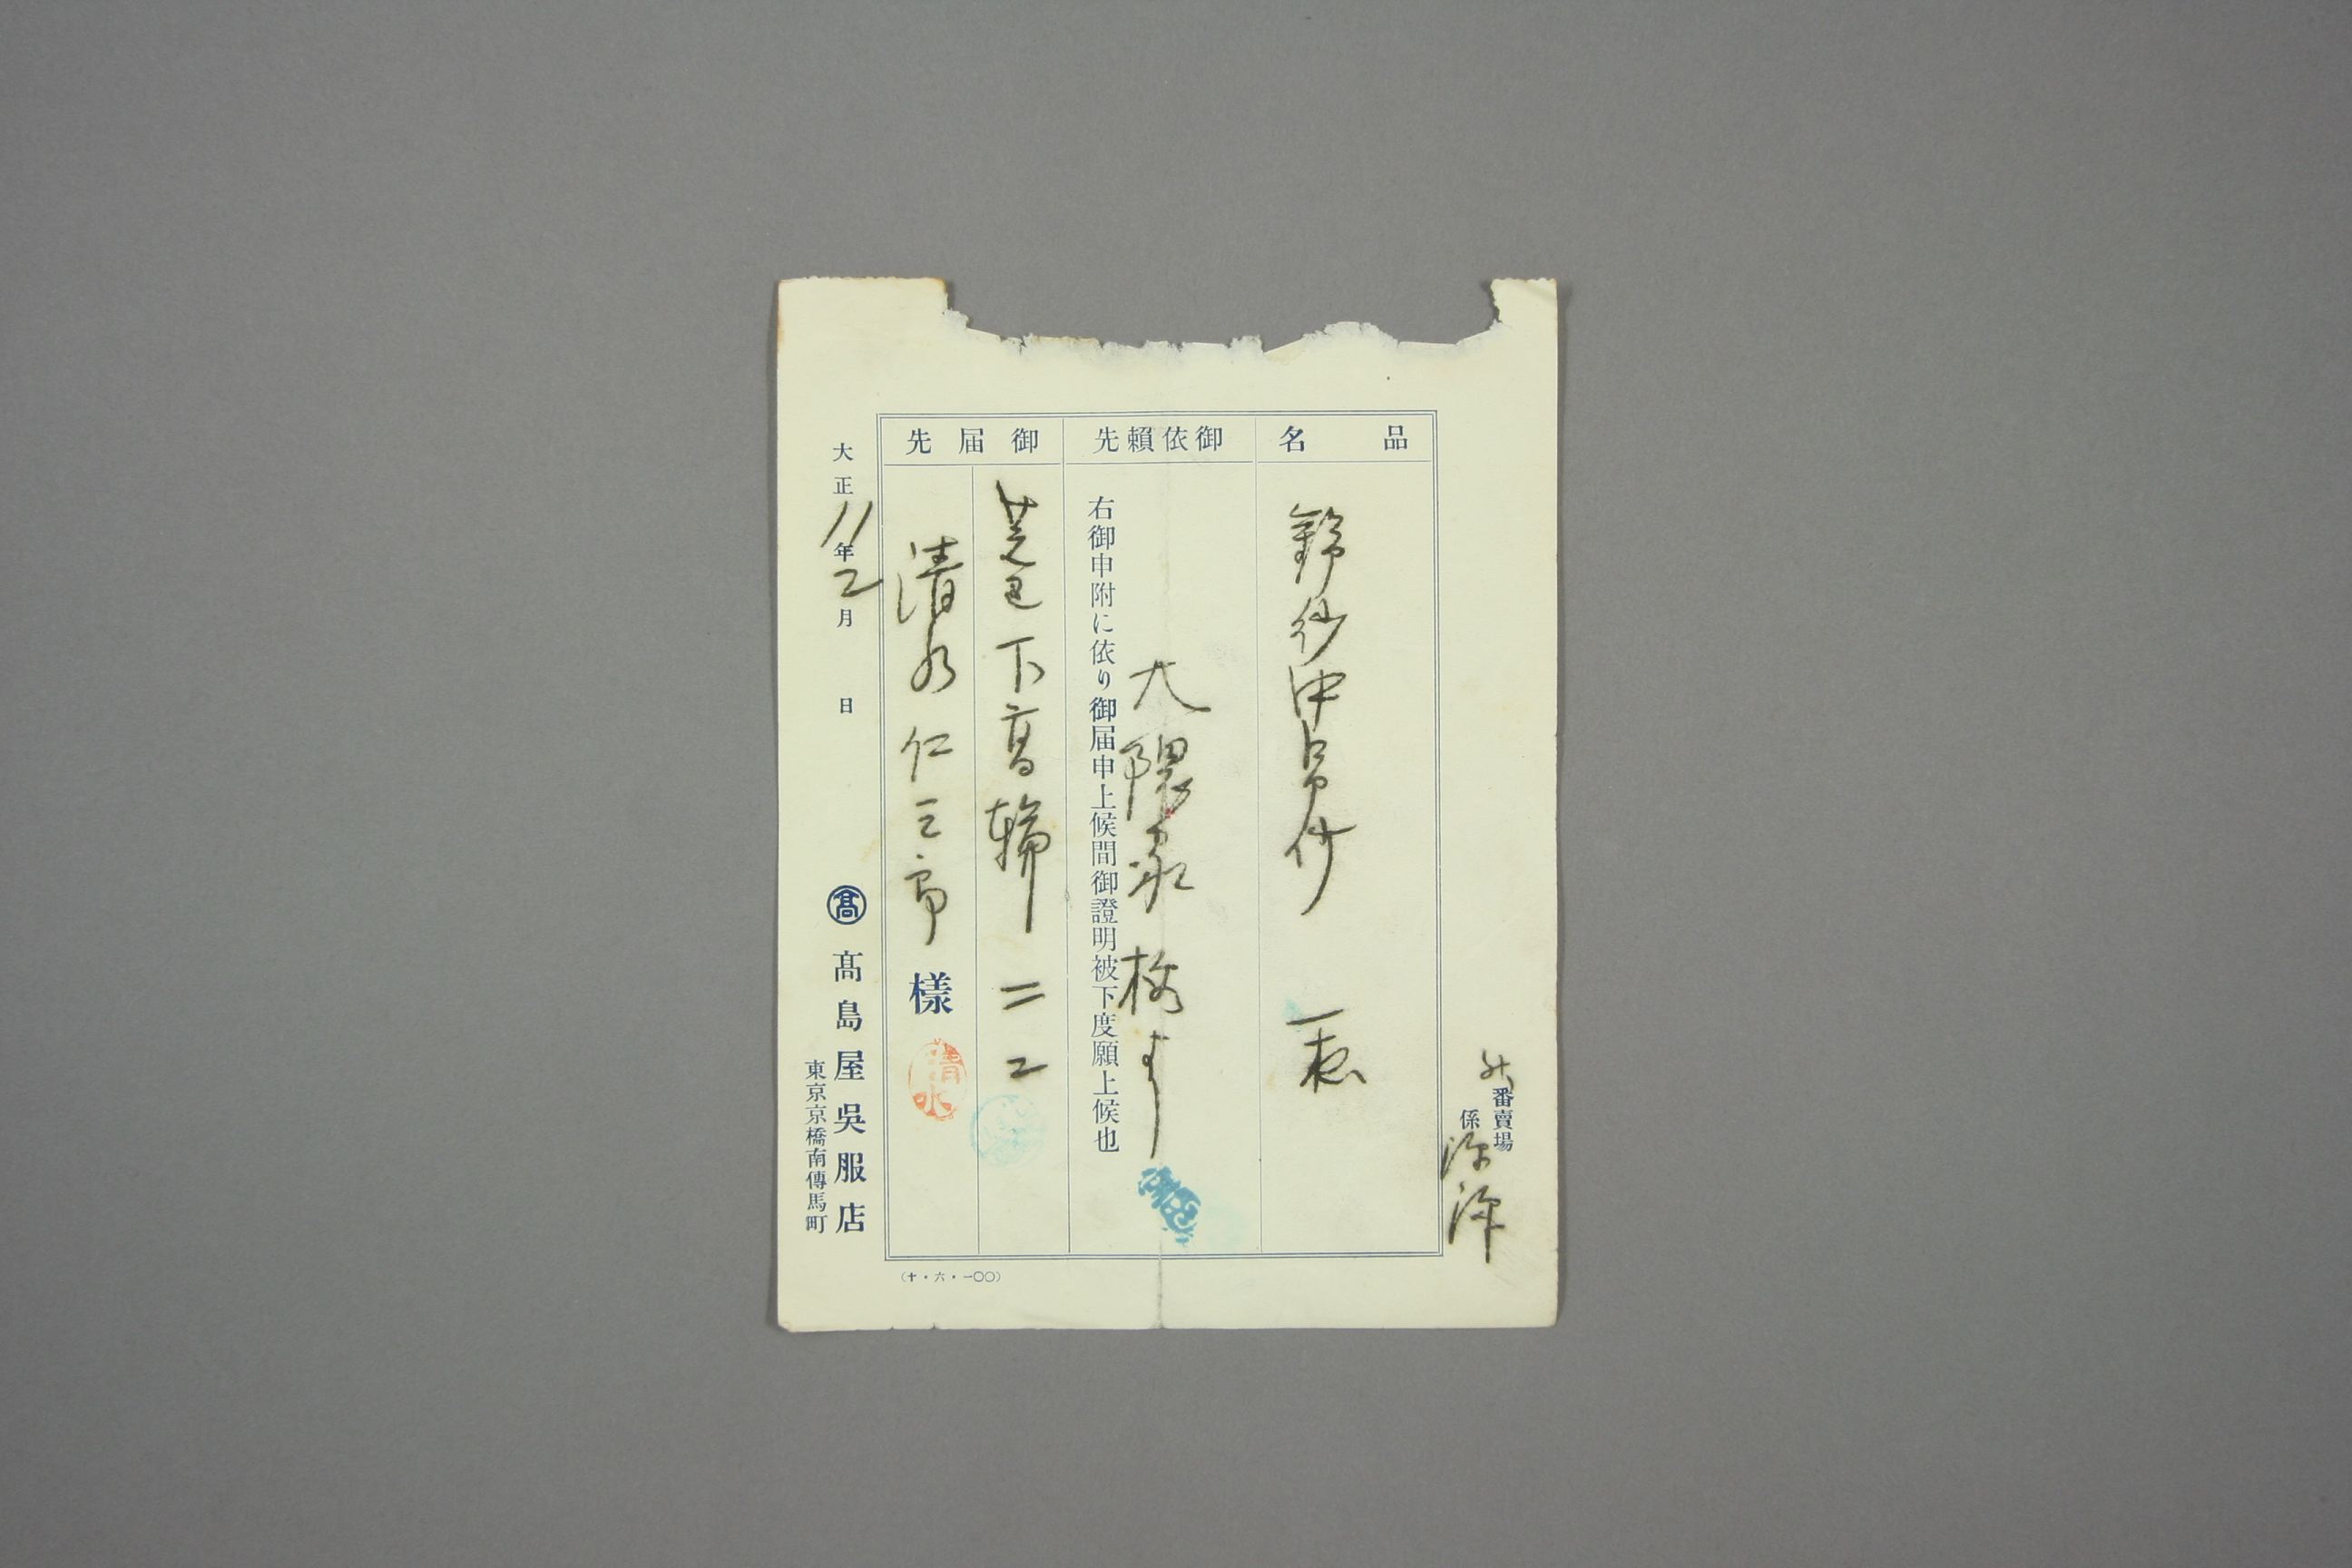 番賣場
係
品名
御依賴先
大隈家
右御申附に依り御届申上候間御證明被下度願上候也
御届先
芝区下高輪二二
清水仁三郎樣
清水
大正11年2月日
髙
髙島屋吳服店
東京京橋南傳馬町
(十・六・一〇〇)